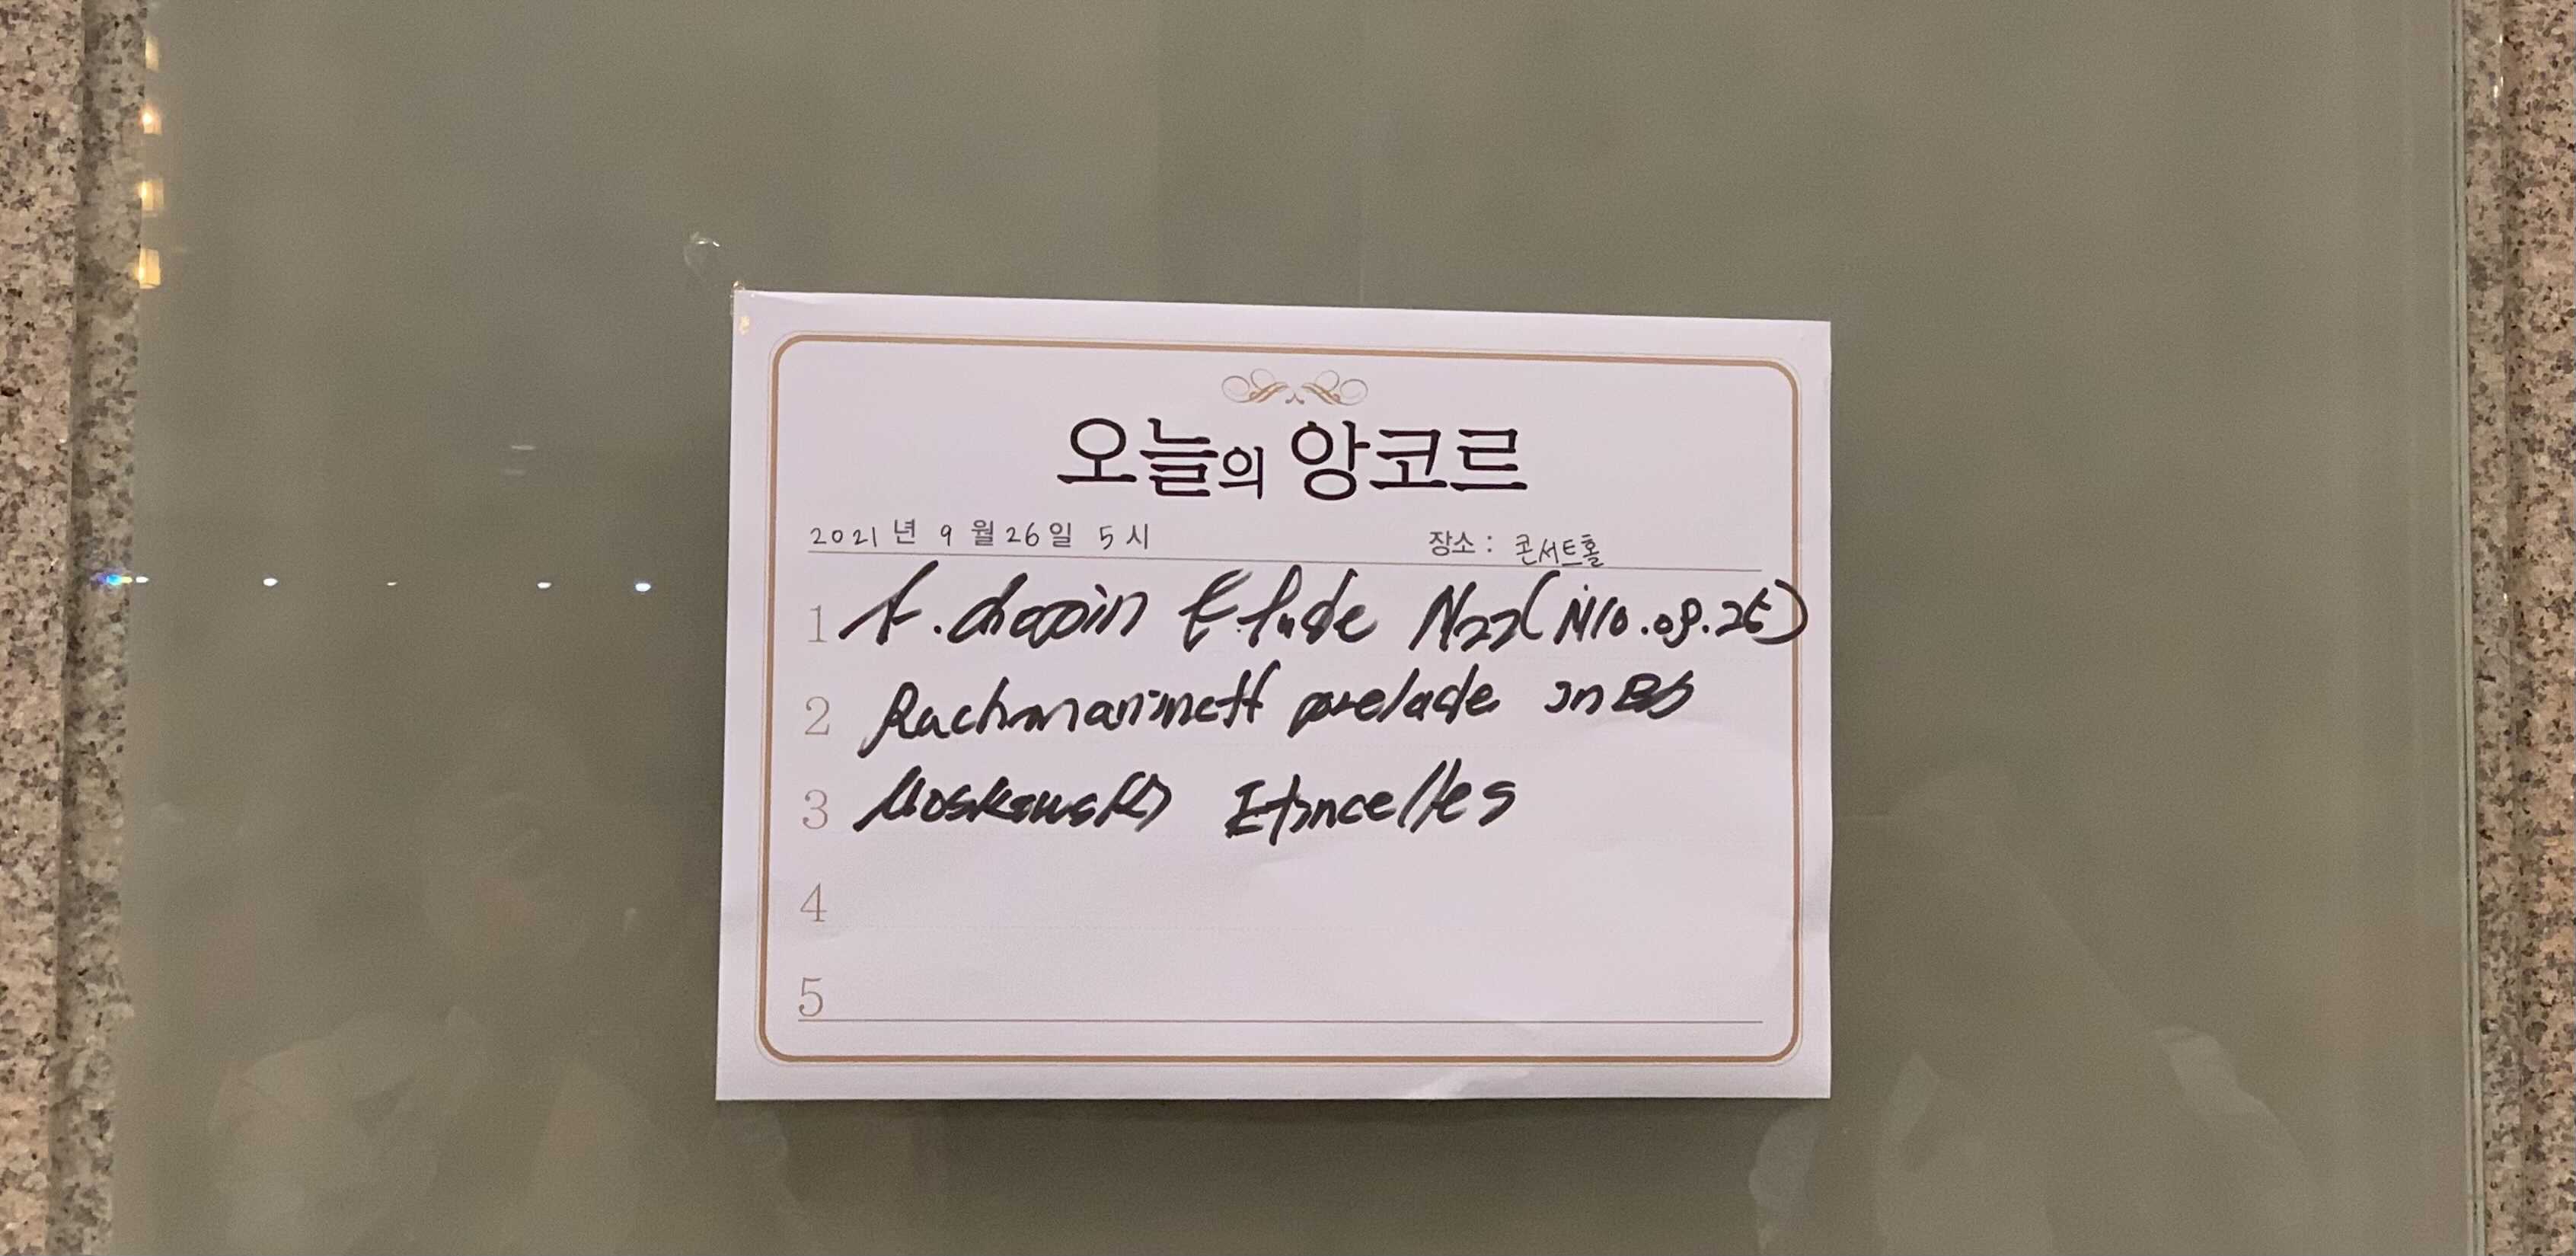 오늘의 앙코르
2021년 9월 26일 5시 장소 : 콘서트홀
1 F. chopin Etude N22 (N10. op. 25)
2 Rachmaninoff prelude in Bb
3 Moskowski Etincelles
4
5